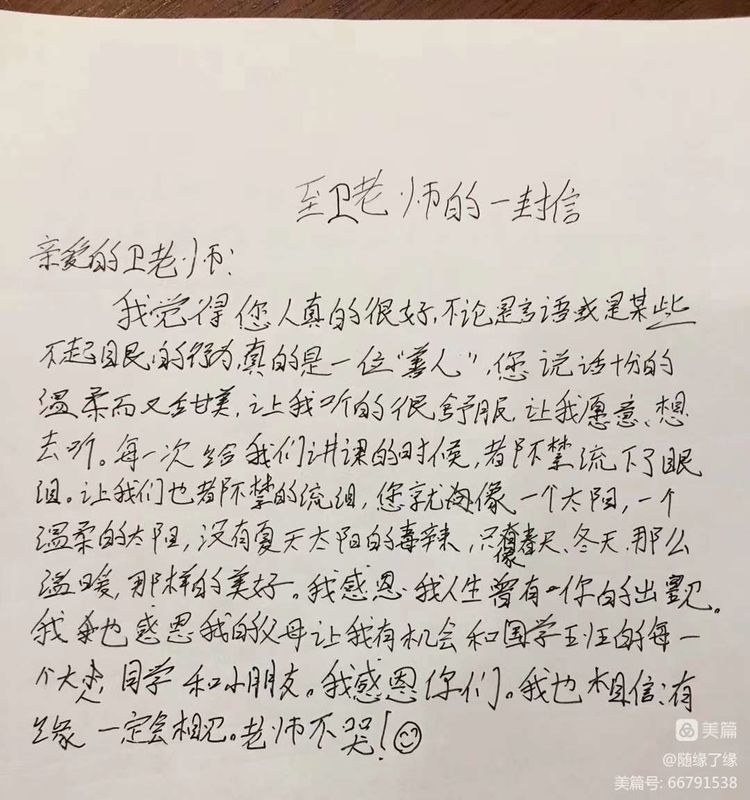 至卫老师的一封信
亲爱的卫老师:
我觉得您人真的很好,不论是言语或是某些
不起目民的行为,真的是一位“善人”,您说话十份的
温柔而又甜美,让我听的很舒服,让我愿意、想
去听。每一次给我们讲课的时候,都不禁流下了眼
泪。让我们也都不禁的流泪,您就像一个太阳,一个
温柔的太阳,没有夏天太阳的毒辣,只有像春天、冬天、那么
温暖,那样的美好。我感恩我人生曾有你的出现。
我也感恩我的父母让我有机会和国学五班的每一
个大人,同学和小朋友。我感恩你们。我也相信:有
缘一定会相见。老师不哭!
美篇
@随缘了缘
美篇号:66791538